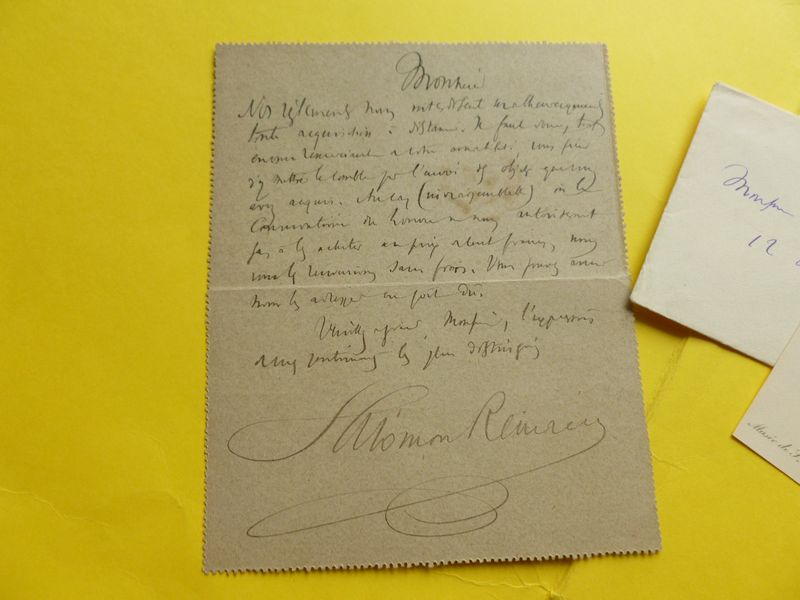 Monsieur
Nos règlements nous interdisent malheureusement
toute acquisition à distance. Il faut donc, tout
en vous remerciant de votre amabilité, vous prier
d'y mettre le comble par l'envoi des objets que vous
avez acquis. Au cas (invraisemblable) où la
Conservation du ne nous autoriserait
pas à les acheter au prix de cent francs, nous
vous les renverrions sans frais. Vous pouvez aussi
nous les adresser en port dû.
Veuillez agréer, Monsieur, l'expression
de mes sentiments les plus distingués
Salomon Reinach
12
Musée de S